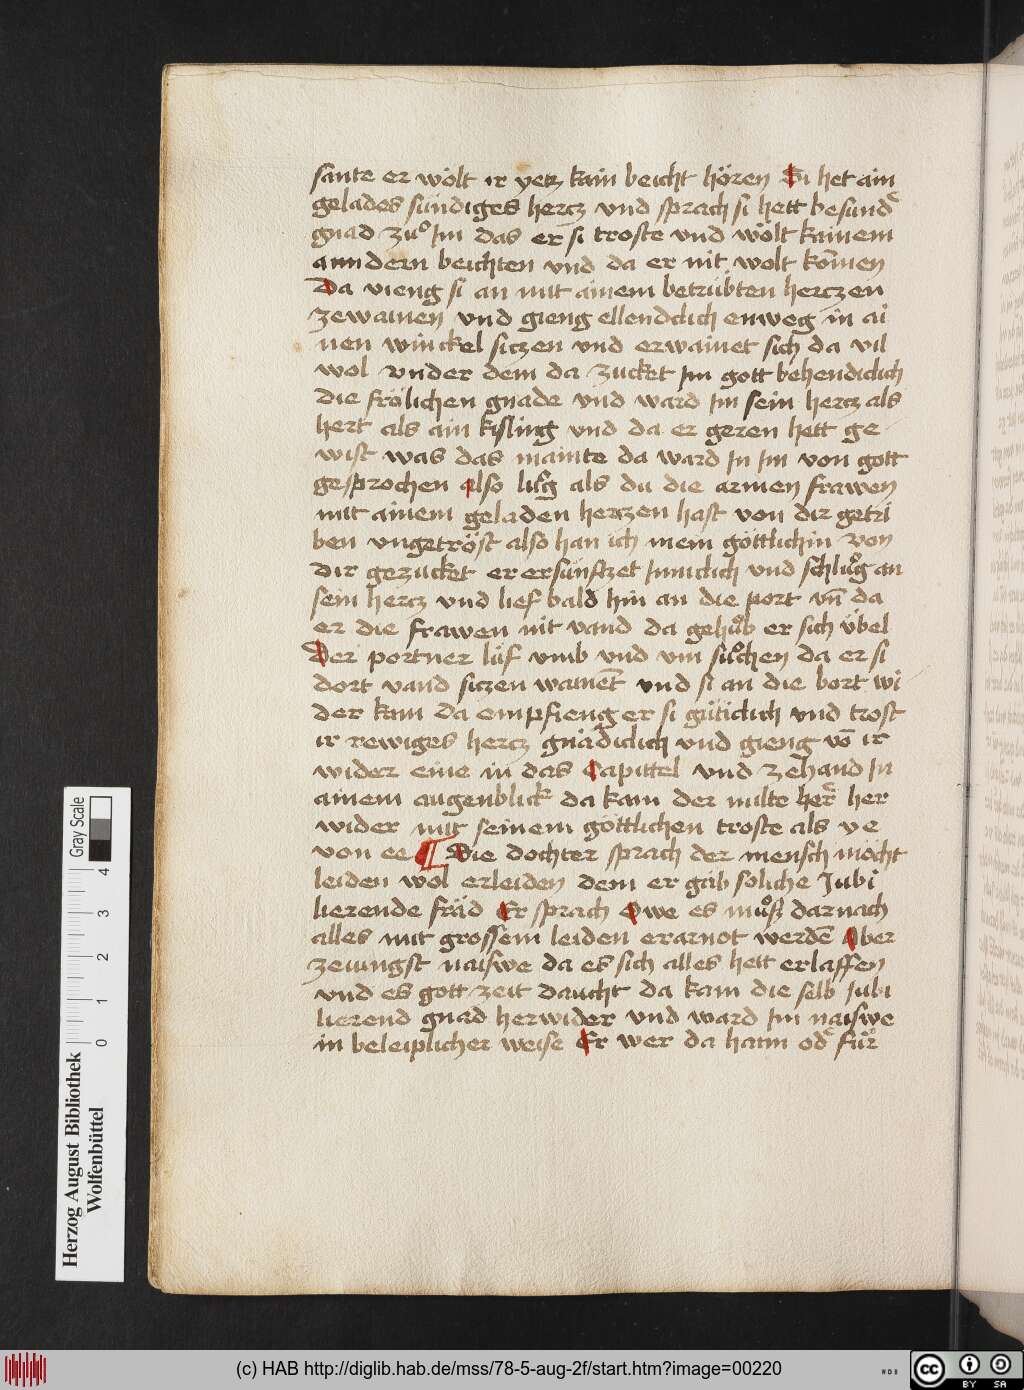 sante er wölt ir yetz kain beicht hören Si het ain
gelades sündiges hercz vnd sprach si hett besund͛
gnad zuͦ Im das er si troste vnd wölt kainem
anndern beichten vnd da er nit wolt kom̄en
Da vieng si an mit ainem betrübten herczen
zewainen vnd gieng ellendclich enweg in ai
nen winckel siczen vnd erwainet sich da vil
wol vnder dem da zucket Im gott behendiclich
die frölichen gnade vnd ward Im sein hercz als
hert als ain kisling vnd da er geren hett ge
wist was das mainte da ward In Im von gott
gesprochen also als du die armen frawen
mit ainem geladen herczen hast von dir getri
ben vngetröst also han ich mein göttlichin von
dir gezucket er ersünftzet Inniclich vnd schluͦg an
sein hercz vnd lief bald hin an die port vn̄ da
er die frawen nit vand da gehuͦb er sich übel
Der portner lüf vmb vnd vm suͦchen da er si
dort vand siczen wainēt vnd si an die bort wi
der kam da empfieng er si güticlich vnd trost
ir rewiges hercz gnädiclich vnd gieng vō ir
wider eine in das Capittel vnd zehand In
ainem augenblick da kam der milte her͛ her
wider mit seinem göttlichen troste als ve
von ee Die dochter sprach der mensch möcht
leiden wol erleiden dem er gäb soliche Jubi
lierende fräd Er sprach Owe es muͦsz darnach
alles mit grossem leiden erarnot werdē Aber
zeiungst naiswe da es sich alles hett erlaffen
vnd es gott zeit daucht da kam die selb Jubi
lierend gnad herwider vnd ward Im naiswe
in beleiplicher weise Er wer da haim od͛ für
Herzog August Bibliothek
Wolfenbüttel
0 1 2 3 4
Gray Scale
(c) HAB http://diglib.hab.de/mss/78-5-aug-2f/start.htm?image=00220
WDB
cc BY SA